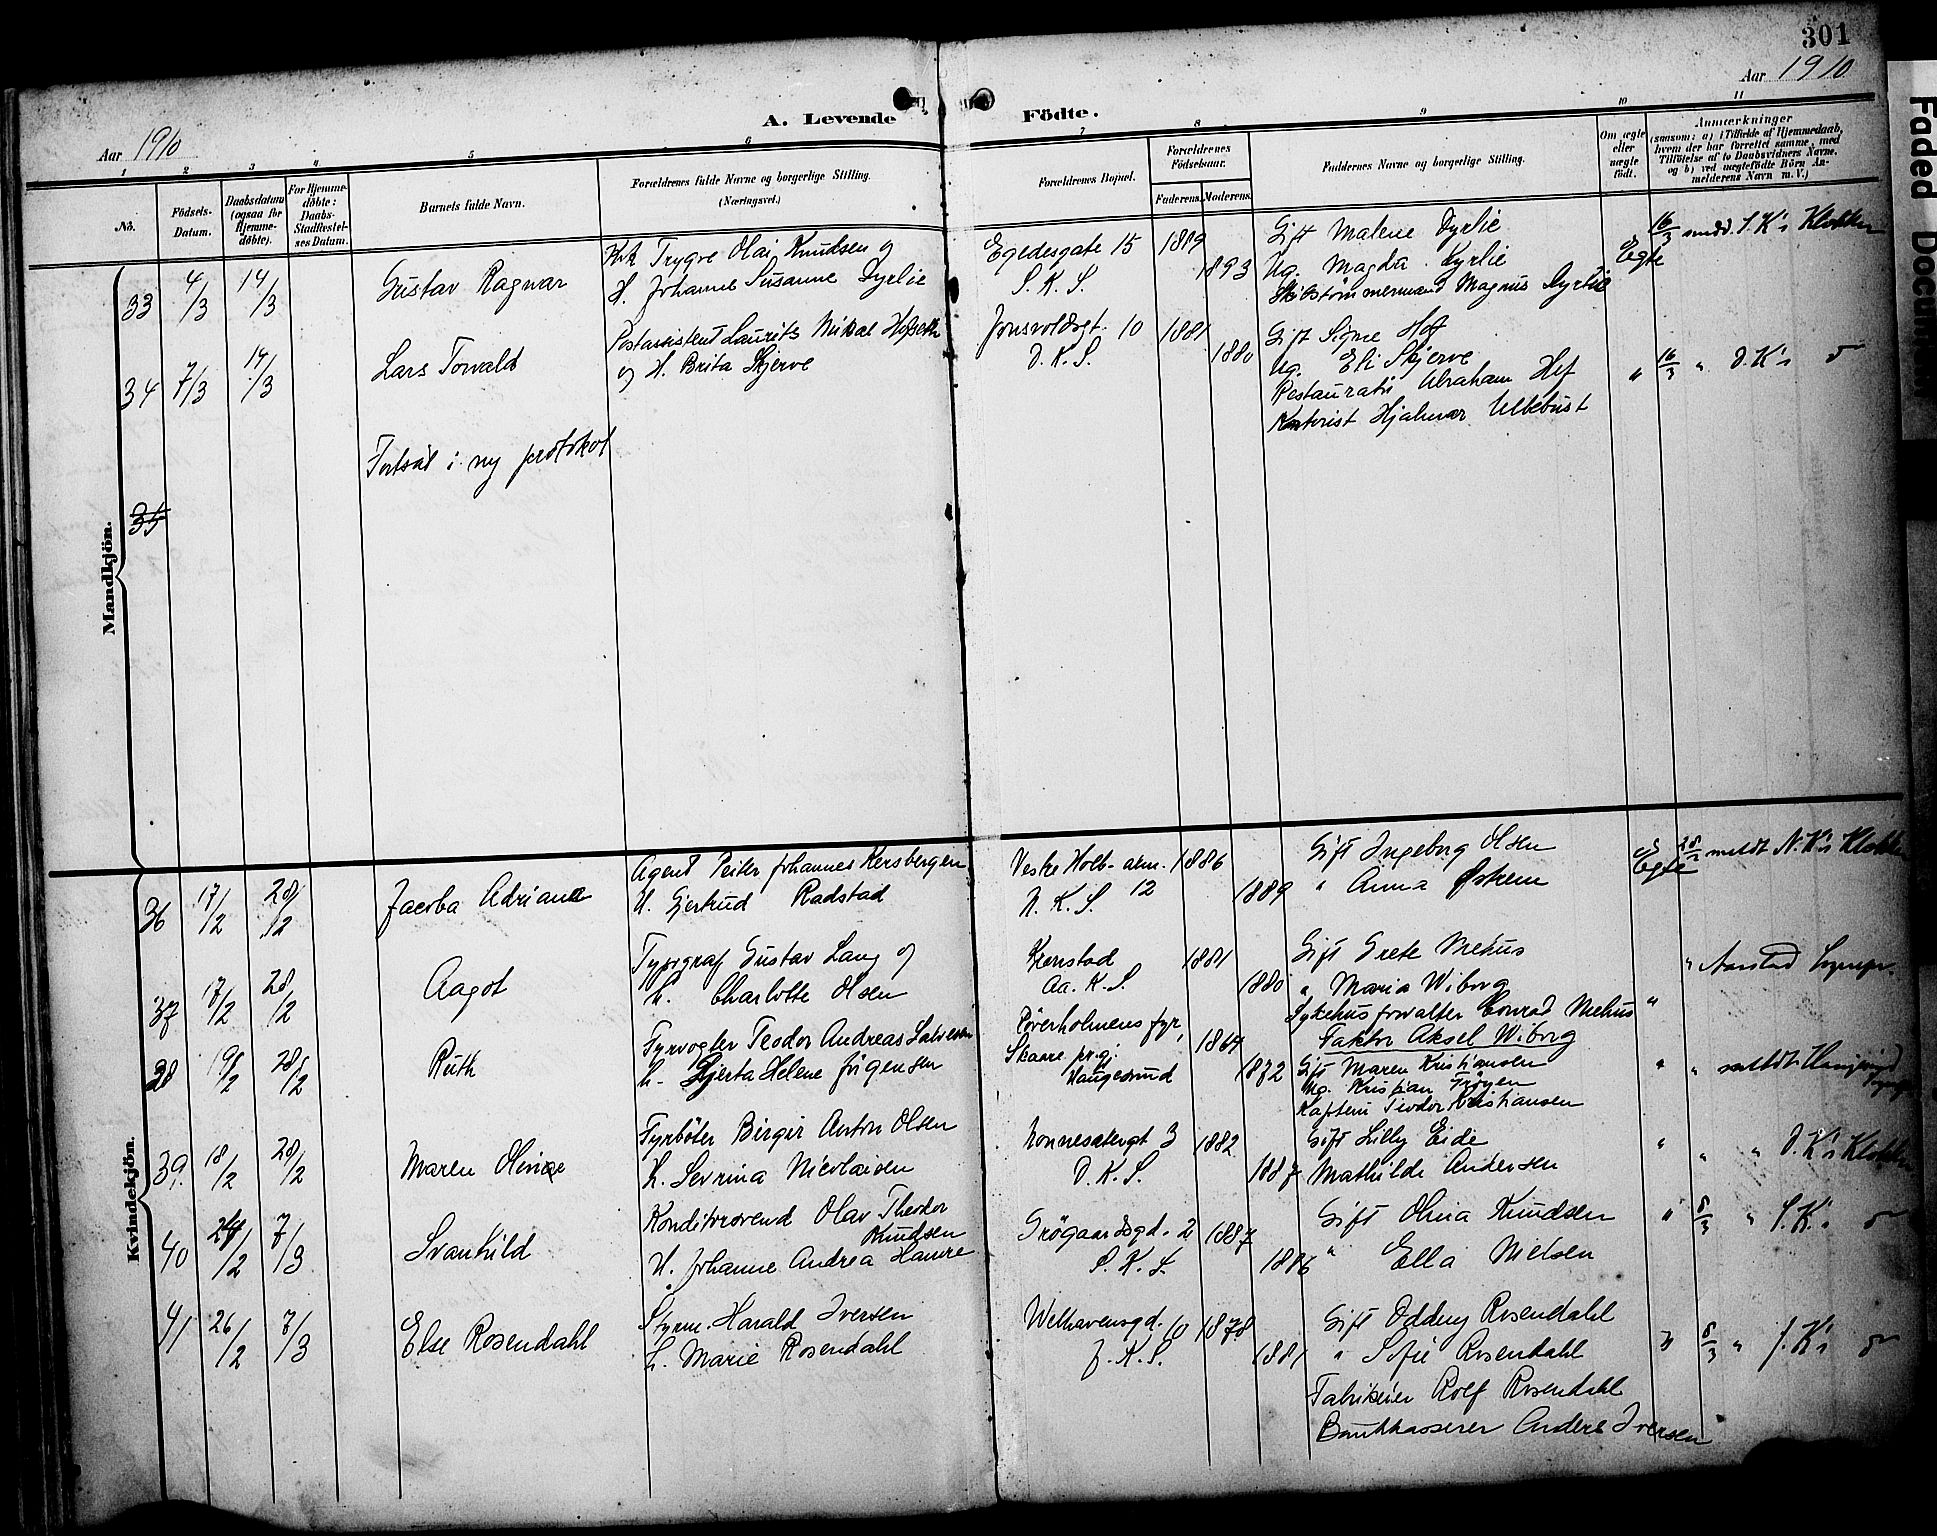 301
Aar 1910
Aar 1910
A. Levende Födte.
1 2 3 4 5 6 7 8 9 10 11
No.
Födsels-Datum.
Daabsdatum (ogsaa for Hjemme-döbte).
For Hjemme-döbte: Daabs-Stadfæstel-ses Datum.
Barnets fulde Navn.
Forældrenes fulde Navne og borgerlige Stilling. (Næringsvei.)
Forældrenes Bopæl.
Forældrenes Födselsaar.
Faderens. Moderens.
Faddernes Navne og borgerlige Stilling.
Om ægte eller uægte født.
Anmærkninger
(saasom: a) i Tilfælde af Hjemmedaab,
hvem der har forrettet samme, med
Tilföielse af to Daabsvidners Navne.
og b) ved uægtefödte Börn An-
melderens Navn m. V.)
Mandkjön.
33 4/3 14/3 Gustav Ragnar
Trygve Olai Knudsen og
H. Johanne Susanne Dyrlie
Egedesgate 15
S. K. S.
1889
1893
Gift Malene Dyrlie
Ug. Magda Dyrlie
Skibstømmermand Magnus Dyrlie
Egte
16/3 medd. S. K's Klokker
34 7/3 14/3 Lars Torvald
Postassistent Laurits Mikal
og H. Brita Skjerve
Jonsvoldsgt. 10
D. K. S.
1881
1880
Gift Signe Hof
Ug. Eli Skjerve
Restauratør Abraham Hof
Kontorist Hjalmar Ullebust
"
16/3 " D. K's
Fortsat i ny protokol
35
Kvindekjön.
36 17/2 28/2 Jacoba Adriana
Agent Peiter Johannes Kersbergen
H. Gjertrud Radstad
Vestre Holb-alm.
N. K. S. 12
1886
1889
Gift Ingeborg Olsen
" Anna
Egte
28/2 meldt N. K's Klokker
37 17/2 28/2 Aagot
Typograf Gustav Lang og
H. Charlotte Olsen
Kronstad
Aa. K. S.
1881
1880
Gift Grete Mehus
" Maria Wiborg
Sykehusforvalter Conrad Mehus
Faktor Aksel Wiborg
"
" Aarstad Sognepr.
38 19/2 28/2 Ruth
Fyrvogter Teodor Andreas
H. Gjerta Helene Jörgensen
Røverholmens fyr,
Skaare pr.gj.
Haugesund
1864
1872
Gift Maren Kristiansen
Ug. Kristian Trøyen
Kaptein Teodor Kristiansen
"
" meldt Haugesund
39 18/2 28/2 Maren Olivæ
Fyrbøter Birger Anton Olsen
H. Sevrina Nicolaisen
Nonnesætergt 3
D. K. S.
1882
1887
Gift Lilly Eide
Mathilde Andersen
"
" " D. K's Klokker
40 24/2 7/3 Svanhild
Konditorsvend Olav Theodor
Knudsen
H. Johanne Andrea Hamre
Grögaardsgd. 2
S. K. S.
1887
1886
Gift Olina Knudsen
" Ella Nielsen
"
8/3 " S. K's
41 26/2 7/3 Else Rosendahl
Styrm. Harald Iversen
H. Marie Rosendahl
Welhavensgd. 10
J. K. S.
1878
1881
Gift Oddny Rosendahl
" Sofie Rosendahl
Fabrikeier Rolf Rosendahl
Bankkasserer Anders Iversen
"
8/3 " J. K's
Faded Document